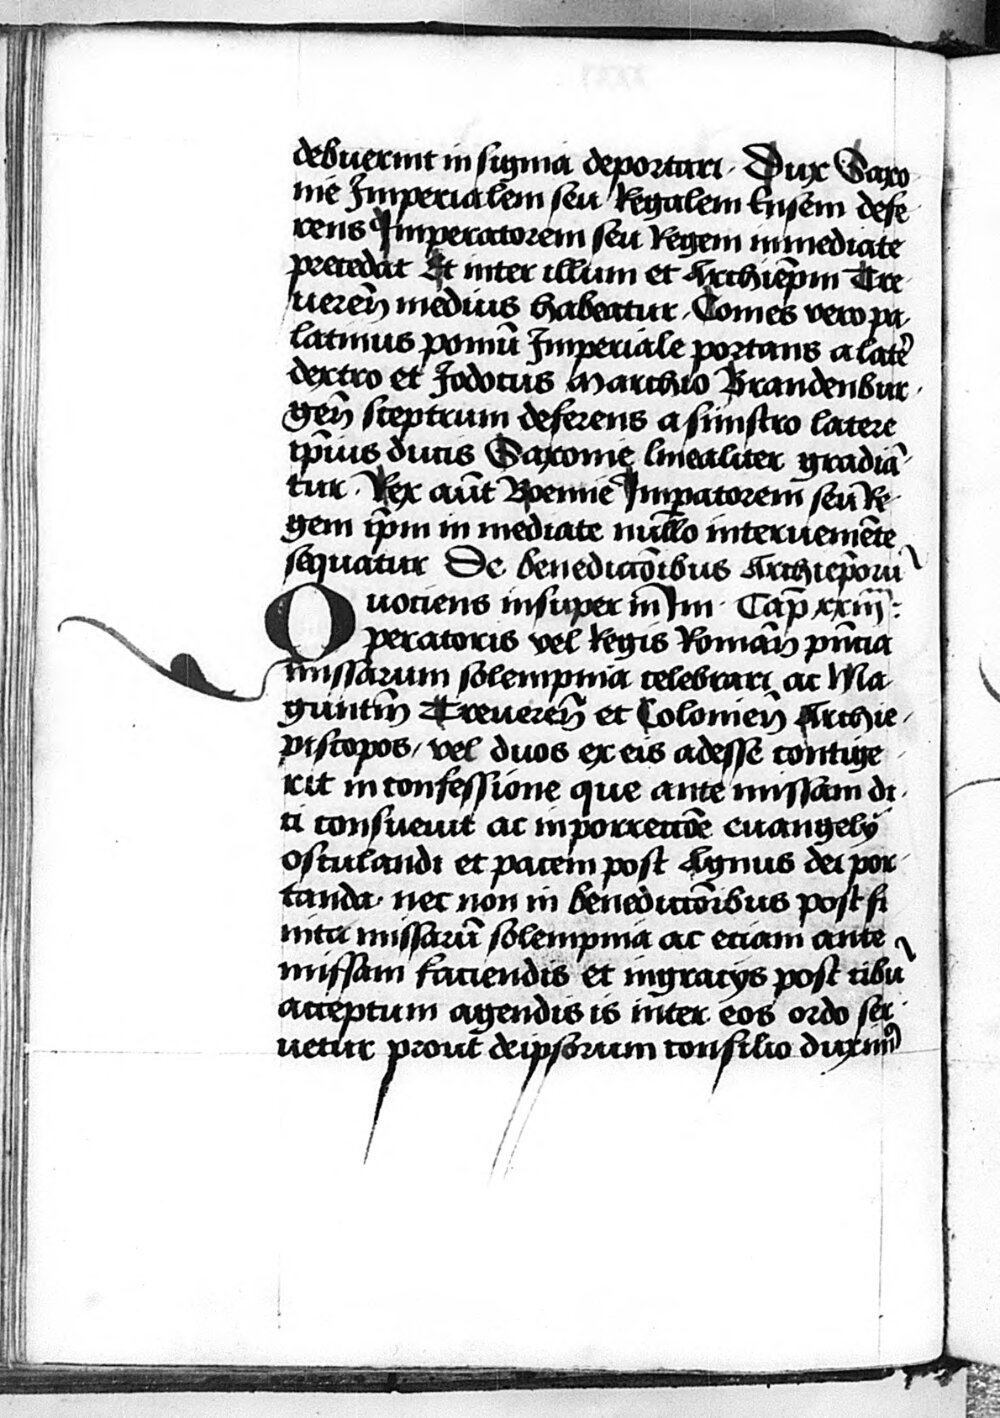 debuerint in signia deportari · Dux Saxo
nie Imperialem seu Regalem Ensem defe
rens Imperatorem seu Regem inmediate
precedat Et inter illum et Archiep̄m Tre
ueren̄ medius habeatur · Comes vero pa
latinus pomū Imperiale portans a late
dextro et Jodocus Marchio Brandenbur
gen̄ sceptrum deferens a sinistro latere
ip̄ius ducis Saxonie linealiter gradiā
tur · Rex aūt Boemie Imp̄atorem seu Re
gem ip̄m in mediate nullo interueniēte
sequatur De benedictōibus Archiep̄oru
Quociens insuper in Im · Cap̄ xxiii :
peratoris vel Regis Roman̄ pn̄cia
missarum solempnia celebrari ac Ma
guntin̄ Treueren̄ et Colonien̄ Archie
piscopos / vel duos ex eis adesse contige
rit in confessione que ante missam di
ci consueuit ac in porrectōe euangelij
osculandi et pacem post Agnus dei por
tanda · nec non in benedictōibus post fi
nita missarū solempnia ac etiam ante
missam faciendis et in gracijs post cibu
acceptum agendis is inter eos ordo ser
uetur prout de ipsorum consilio duximꝰ